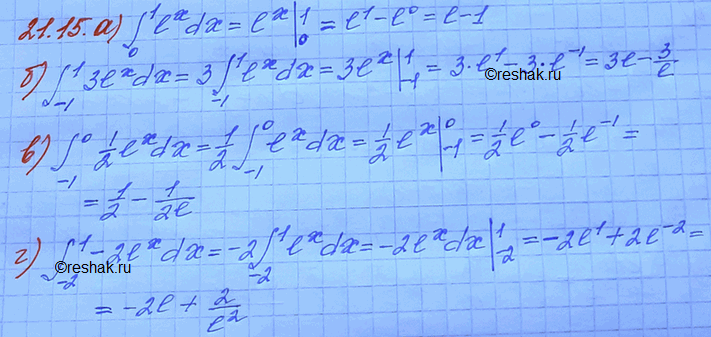 21.15. а) ∫₀¹ eˣdx = eˣ|₀¹ = e¹ - e⁰ = e - 1
б) ∫₋₁¹ 3eˣdx = 3∫₋₁¹ eˣdx = 3eˣ|₋₁¹ = 3·e¹ - 3·e⁻¹ = 3e - 3/e
©reshak.ru
в) ∫₋₁⁰ 1/2 eˣdx = 1/2 ∫₋₁⁰ eˣdx = 1/2 eˣ|₋₁⁰ = 1/2 e⁰ - 1/2 e⁻¹ =
= 1/2 - 1/2e
г) ∫₋₂¹ -2eˣdx = -2∫₋₂¹ eˣdx = -2eˣdx|₋₂¹ = -2e¹ + 2e⁻² =
©reshak.ru
= -2e + 2/e²